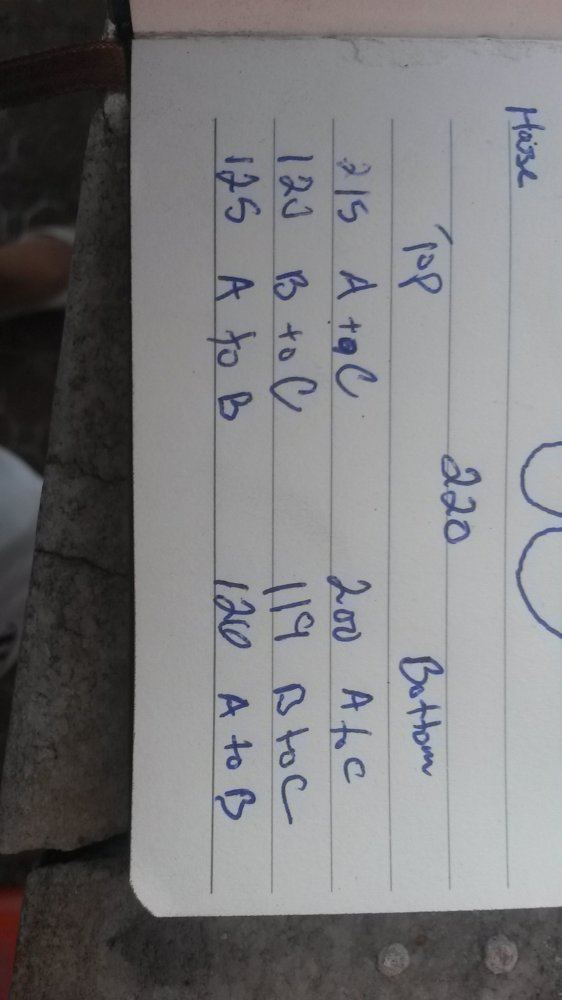 220
Top Bottom
215 A to C 200 A to C
120 B to C 119 B to C
125 A to B 120 A to B